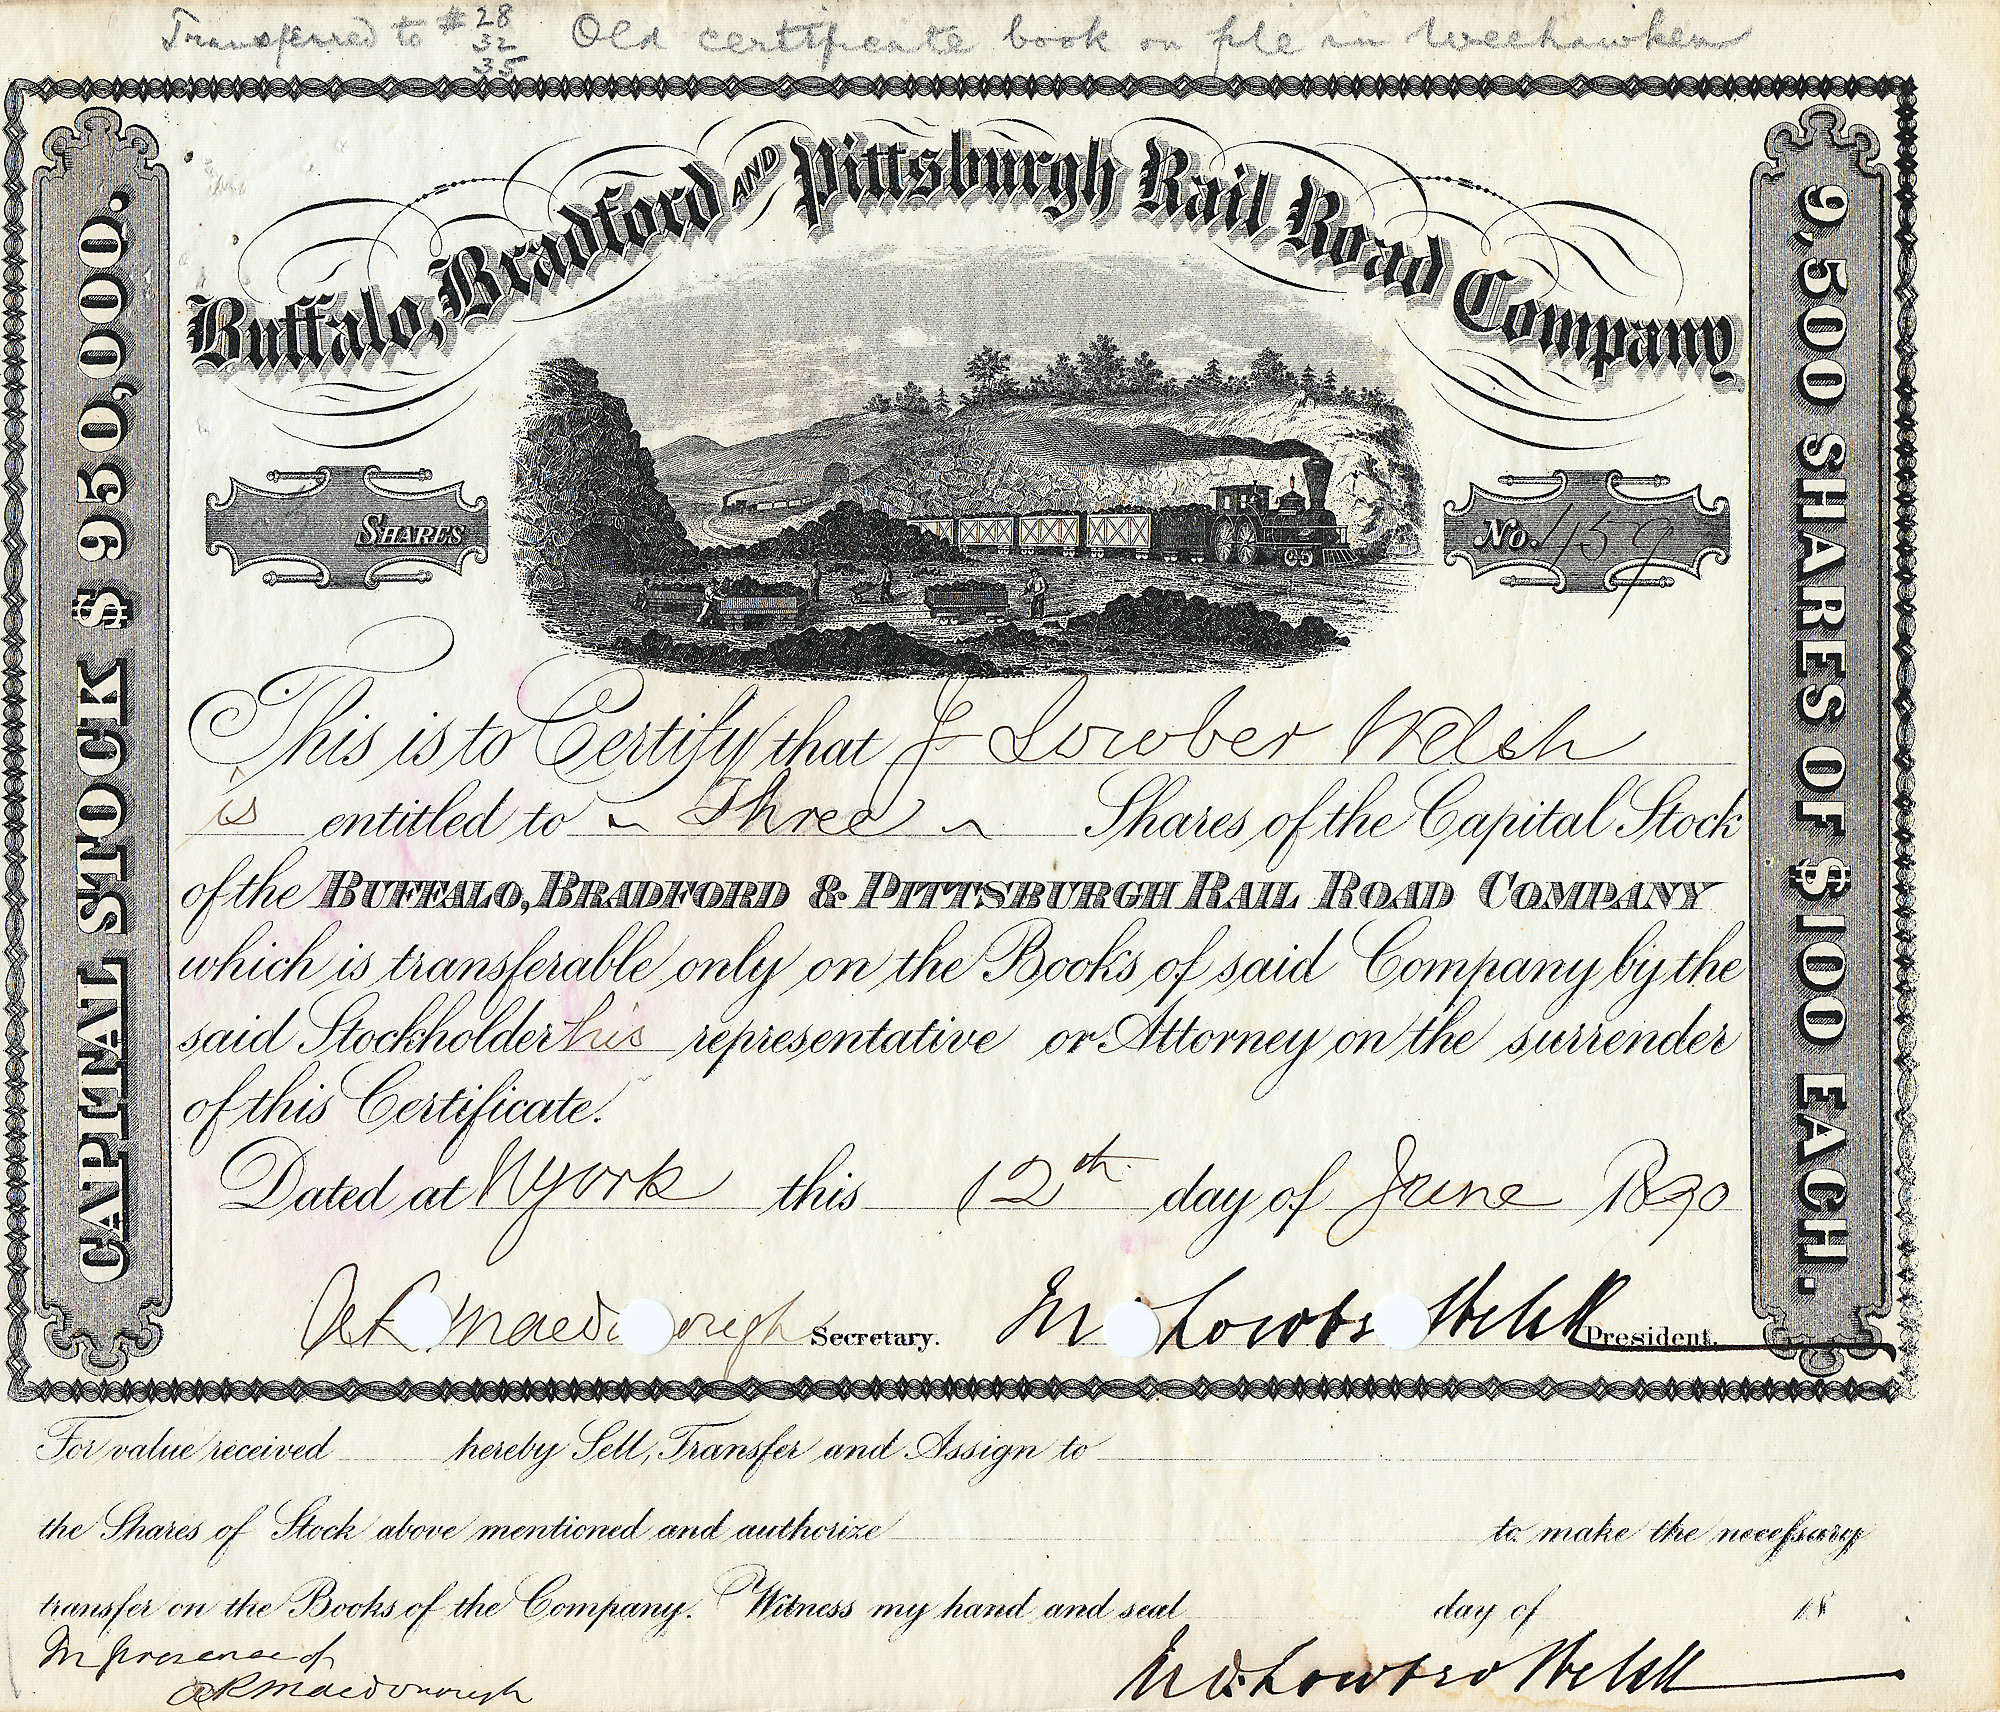 Transferred to #28 Old certificate book on file in Weehawken
32
35
Buffalo, Bradford AND Pittsburgh Rail Road Company
CAPITAL STOCK $950,000.
9,500 SHARES OF $100 EACH.
SHARES
No. 159
This is to Certify that J Lowber Welsh
is entitled to ~ Three ~ Shares of the Capital Stock
of the BUFFALO, BRADFORD & PITTSBURGH RAIL ROAD COMPANY
which is transferable only on the Books of said Company by the
said Stockholder his representative or Attorney on the surrender
of this Certificate.
Dated at NYork this 12th day of June 1890
A R Macdonough Secretary. Lowber Welsh President.
For value received hereby Sell, Transfer and Assign to
the Shares of Stock above mentioned and authorize to make the necessary
transfer on the Books of the Company. Witness my hand and seal day of 18
In presence of
A R Macdonough
Lowber Welsh